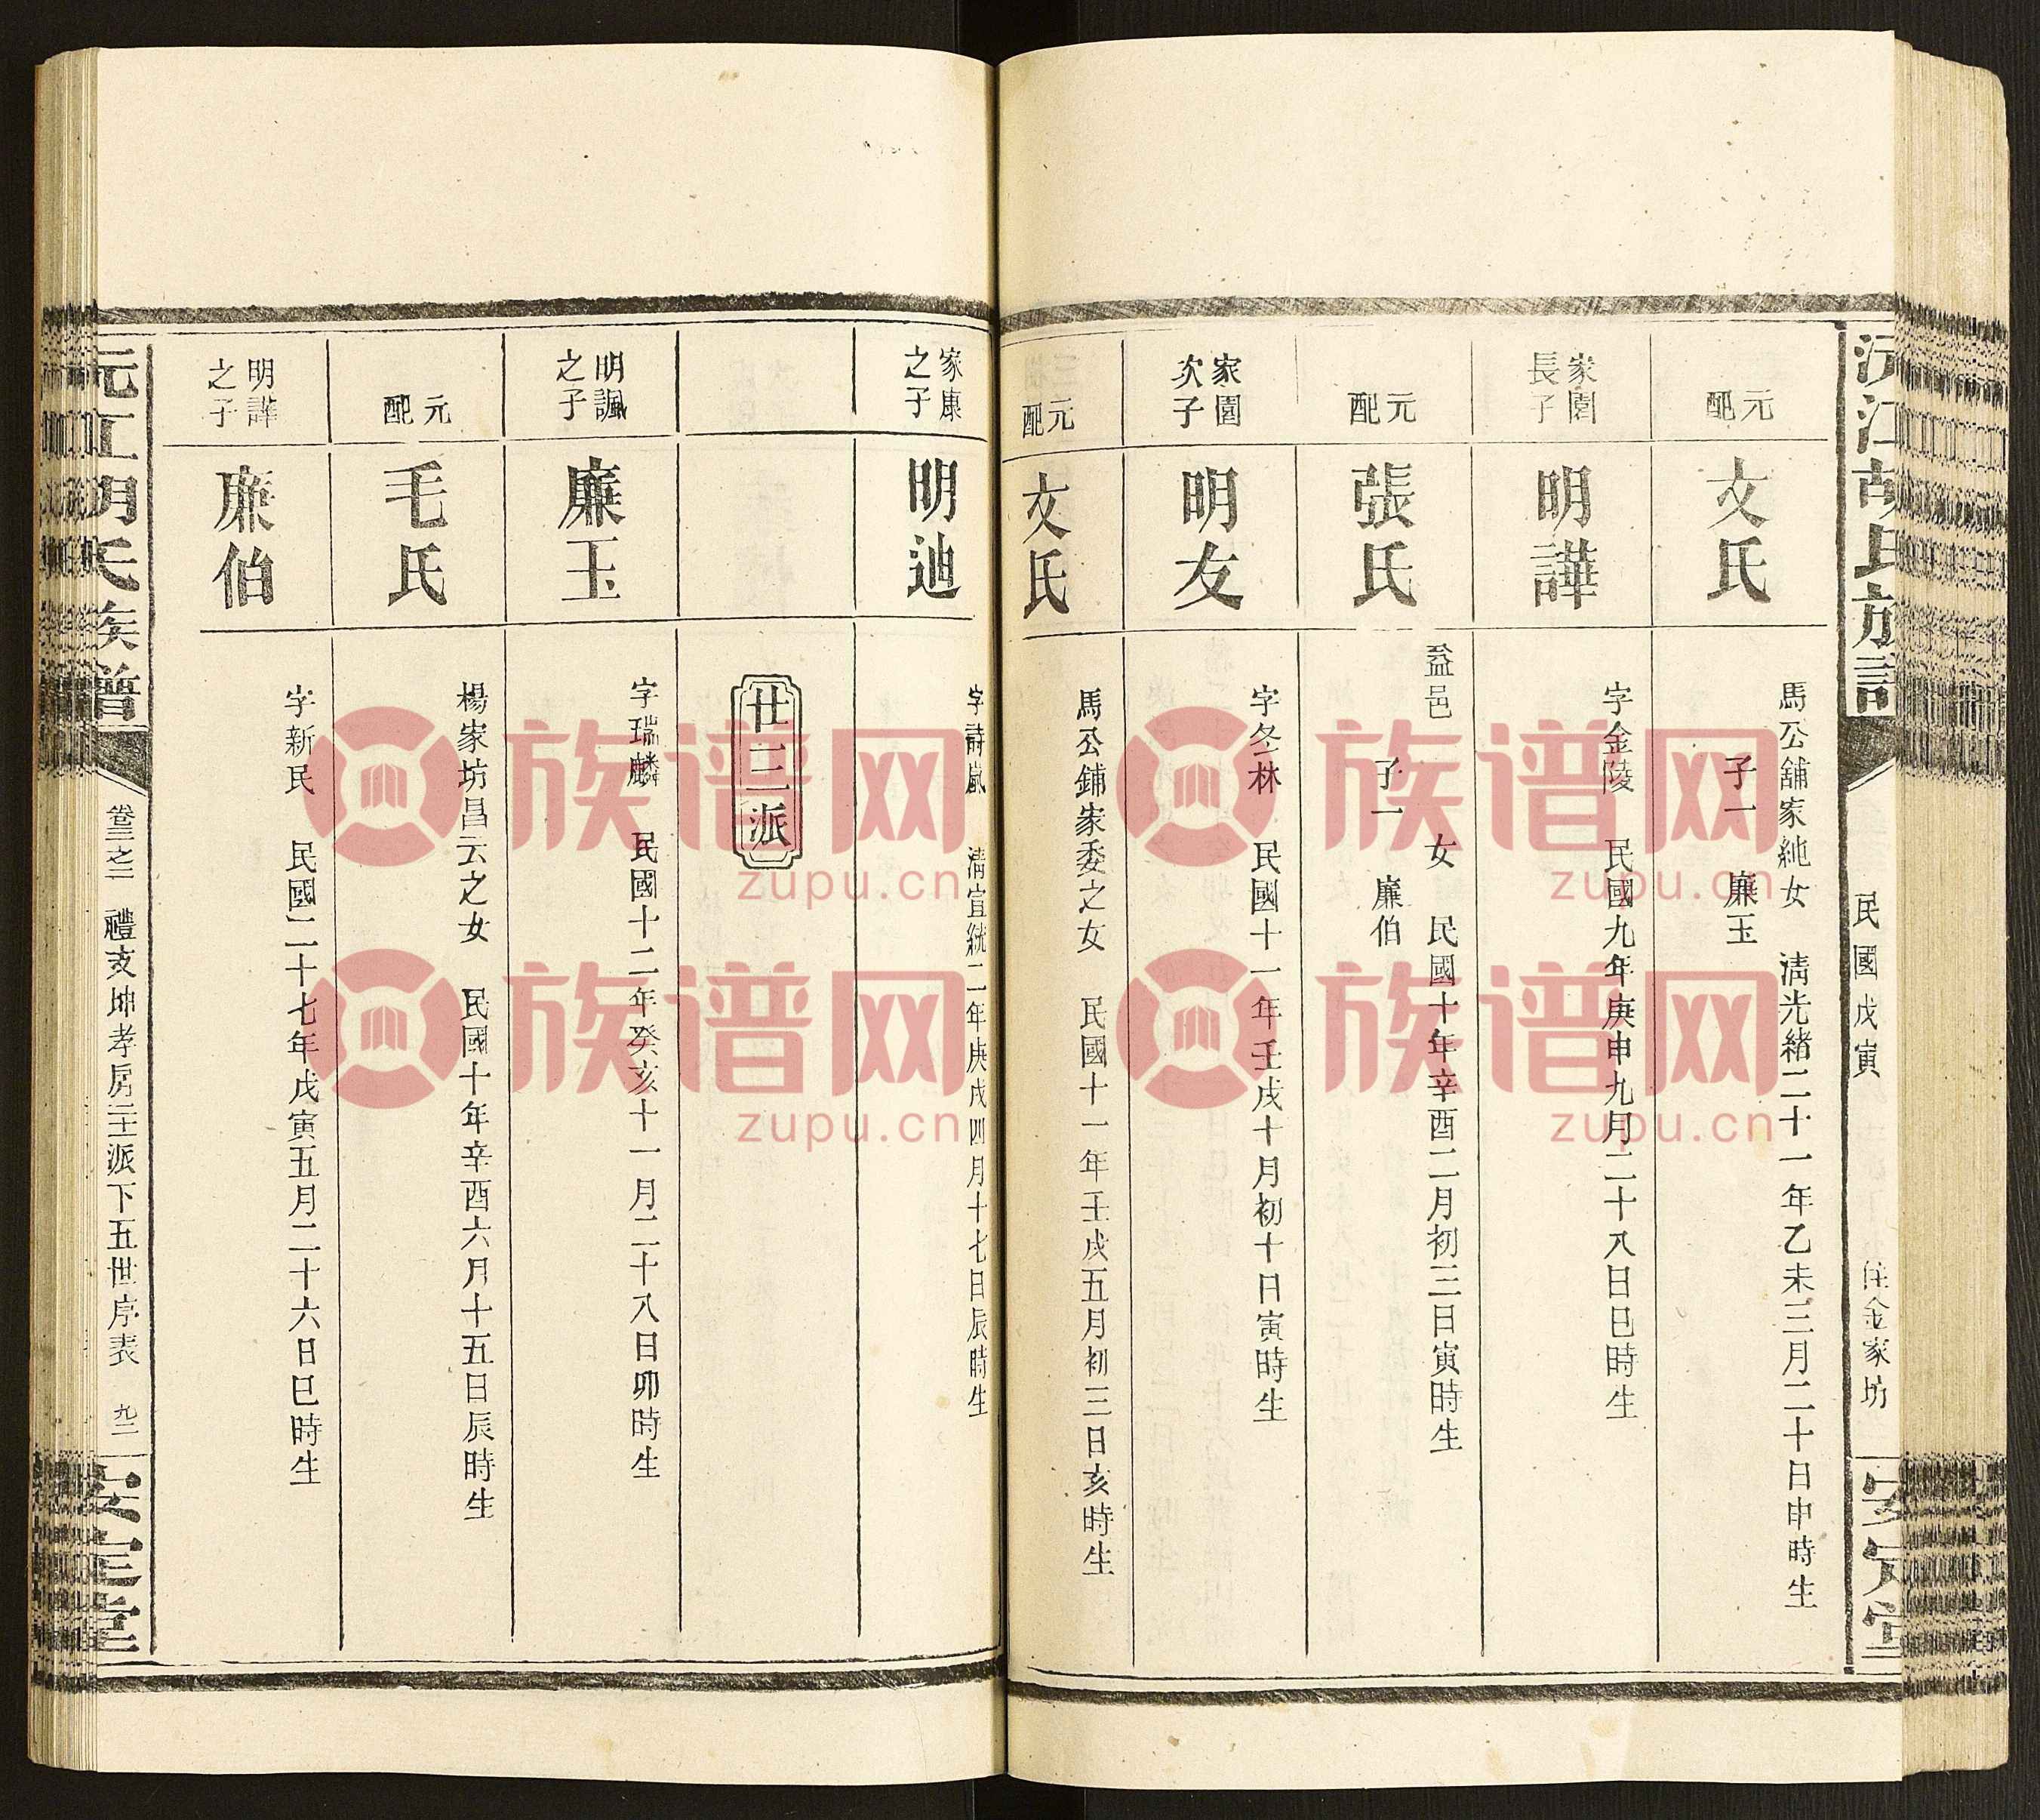 沅江胡氏族譜
民國戊寅
住金家坊
安定堂
元配
文氏
馬公舖家純女 清光緒二十一年乙未三月二十日申時生
子一 廉玉
家園長子
明譁
字金陵 民國九年庚申九月二十八日巳時生
元配
張氏
益邑 女 民國十年辛酉二月初三日寅時生
子一 廉伯
家園次子
明友
字冬林 民國十一年壬戌十月初十日寅時生
元配
文氏
馬公鋪家委之女 民國十一年壬戌五月初三日亥時生
家康之子
明迪
字詩嵐 清宣統二年庚戌四月十七日辰時生
廿三派
明諷之子
廉玉
字瑞麟 民國十二年癸亥十一月二十八日卯時生
元配
毛氏
楊家坊昌云之女 民國十年辛酉六月十五日辰時生
明譁之子
廉伯
字新民 民國二十七年戊寅五月二十六日巳時生
沅江胡氏族譜
卷三之二 禮支坤孝房 派下五世序表 九二
安定堂
族谱网
zupu.cn
族谱网
zupu.cn
族谱网
zupu.cn
族谱网
zupu.cn